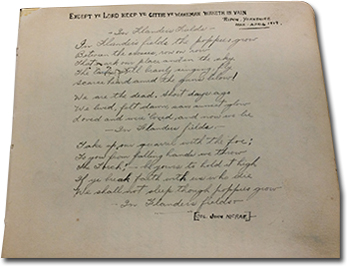 EXCEPT YE LORD KEEP YE CITTIE YE WAKEMAN WAKETH IN VAIN
RIPON, YORKSHIRE
— In Flanders Fields —
In Flanders fields the poppies grow
Between the crosses row on row
That mark our place and in the sky
The larks still bravely singing fly
Scarce heard amid the guns below!
We are the dead, short days ago
We lived, felt dawn saw sunset glow
Loved and were loved, and now we lie
— In Flanders fields —
Take up our quarrel with the foe;
To you from falling hands we throw
The Torch! — Be yours to hold it high
If ye break faith with us who die
We shall not sleep though poppies grow
— In Flanders fields —
[COL. JOHN McCRAE]